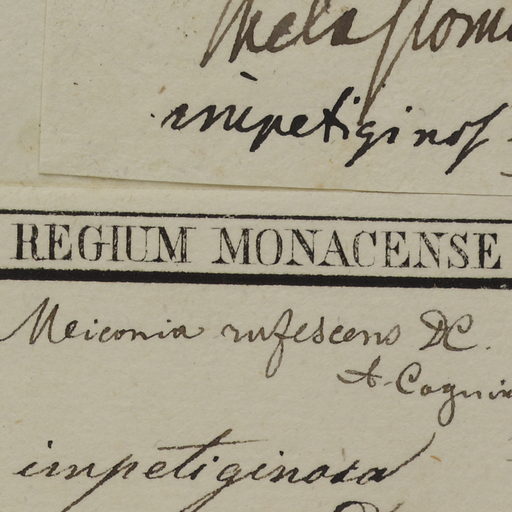 Melastoma
impetiginos
REGIUM MONACENSE
Miconia rufescens DC.
A. Cogniau
impetiginosa